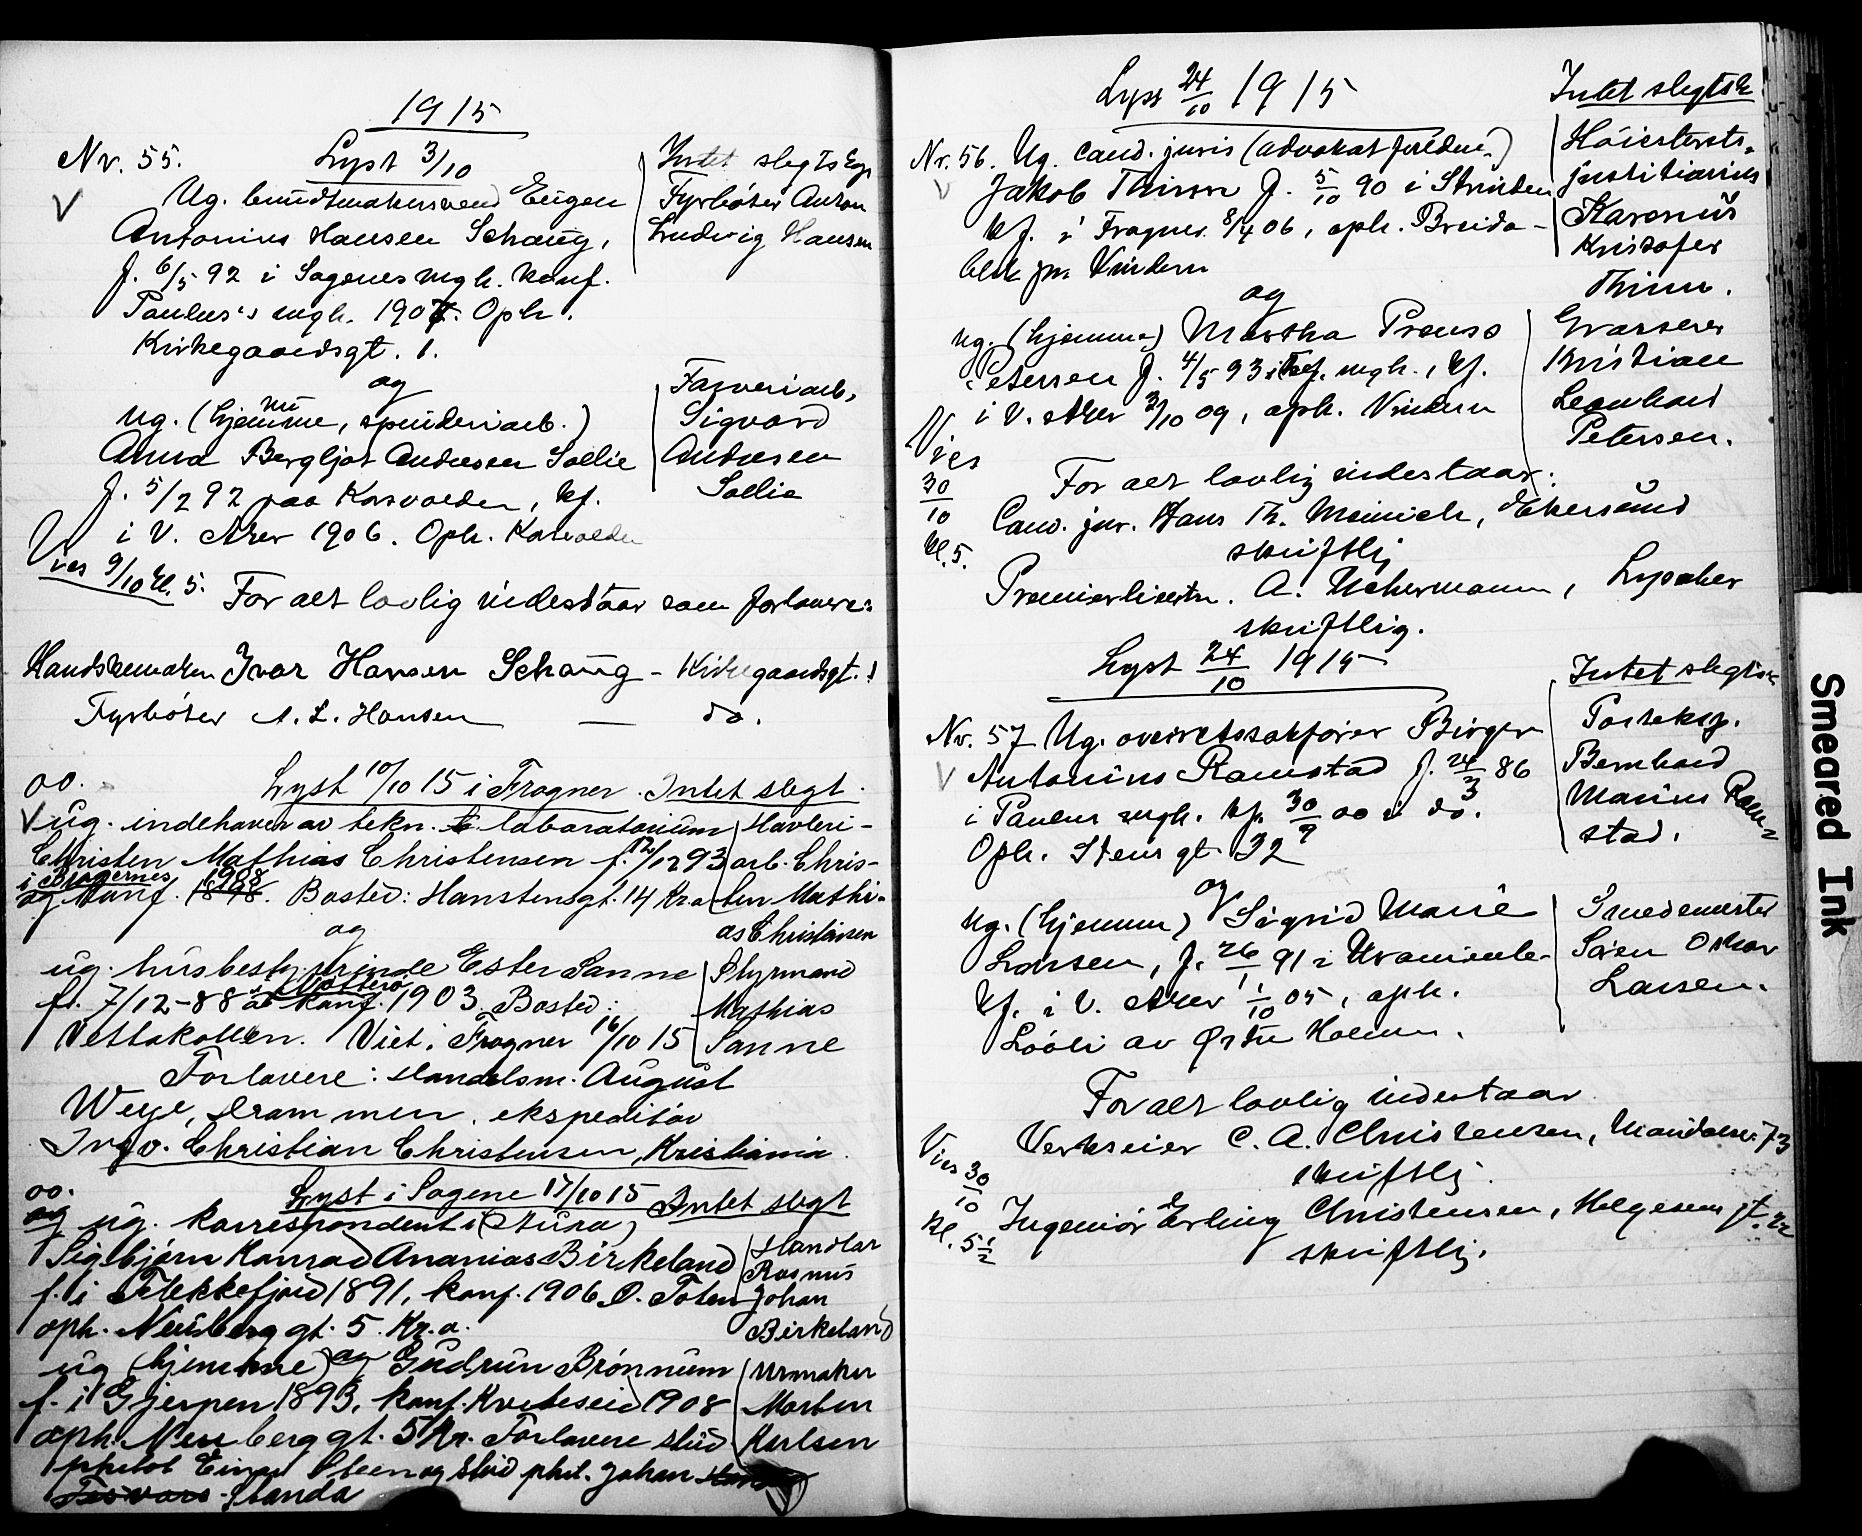 1915
Nr. 55. Lyst 3/10 Intet slegtskp
Ug. buntmakersvend Eugen Fyrbøter Anton
Antonius Hansen Schaug, Ludvig Hansen
f. 6/5 92 i Sagenes mgh. konf.
Paulus's mgh. 1907. Oph.
Kirkegaardsgt. 1.
og
ug. (hjemme, spinderiarb.) Farveriarb.
Anna Bergljot Andresen Sollie Sigvard
f. 5/2 92 paa Korsvolden, kf. Andresen
i V. Aker 1906. Oph. Korsvolden Sollie
Vies 9/10 kl. 5. For alt lovlig indestaar som forlovere:
Handskemaker Ivar Hansen Schaug - Kirkegaardsgt. 1
Fyrbøter A. L. Hansen — do.
oo. Lyst 10/10 15 i Frogner. Intet slegt.
ug. indehaver av tekn. laboratorium Havleri-
Christen Mathias Christensen f. 12/12 93 arb. Chris-
i Bragernes
og konf. 1908. Bosted: Hanstensgt. 14 Kra ten Mathi-
og as Christensen
ug. husbestyrerinde Ester Sanne Styrmand
f. 7/12-88 konf. 1903 Bosted: Mathias
Vettakollen. Viet i Frogner 16/10 15 Sanne
Forlovere: Handelsm. August
Weye, Drammen. ekspeditør
Ingv. Christian Christensen, Kristiania.
oo. Lyst i Sagene 17/10 15 Intet slegt
og ug. korrespondent i (Stura)
Sigbjørn Konrad Ananias Birkeland Handlar
Rasmus
f. i Flekkefjord 1891, konf. 1906 Ø. Toten Johan
oph. Neuberggt. 5. Kr.a. Birkeland
ug (hjemme) og Gudrun Brønnum Urmaker
f. i Gjerpen 1893, konf. Kviteseid 1908 Morten
oph. Neuberggt. 5 Kr. Forlovere stud Karlsen
philol Einar Steen og stud phil. Johan
Handa
Lyst 24/10 1915 Intet slegtsk
Nr. 56. Ug. cand. juris (advokatfuldm.) Høiesterets-
Jakob Thinn f. 5/10 90 i Strinden justitiarius
kf. i Frogner 8/4 06, oph. Breida- Karenus
blik pr. Vindern Kristofer
og Thinn.
ug. (hjemme) Martha Preuss Grosserer
Petersen f. 4/5 93 i Tref. mgh., kf. Kristian
i V. Aker 3/10 09, oph. Vindern Leonhard
Petersen.
Vies 30/10 kl. 5.
For alt lovlig indestaar:
Cand. jur. Hans Th. Meinich, Ekersund
skriftlig
Premierlieutn. A. Uchermann, Lysaker
skriftlig.
Lyst 24/10 1915 Intet slegtsk
Nr. 57 Ug. overretssakfører Birger Posteksp.
Antonius Ramstad f. 24/3 86 Bernhard
i Paulus mgh. kf. 30/9 00 i do. Marius Ram-
Oph. Stensgt. 32 stad.
og
ug. (hjemme) Sigrid Marie Smedemester
Larsen, f. 26/1 91 i Uranienb. Søren Oskar
kf. i V. Aker 1/10 05, oph. Larsen.
Lööli av Østre Holmen.
For alt lovlig indestaar
Verkseier C. A. Christensen, Maridalsv. 73
skriftlig.
Vies 30/10 kl. 5 1/2
Ingeniør Erling Christensen, Helgesens gt. 22
skriftlig.
Smeared Ink